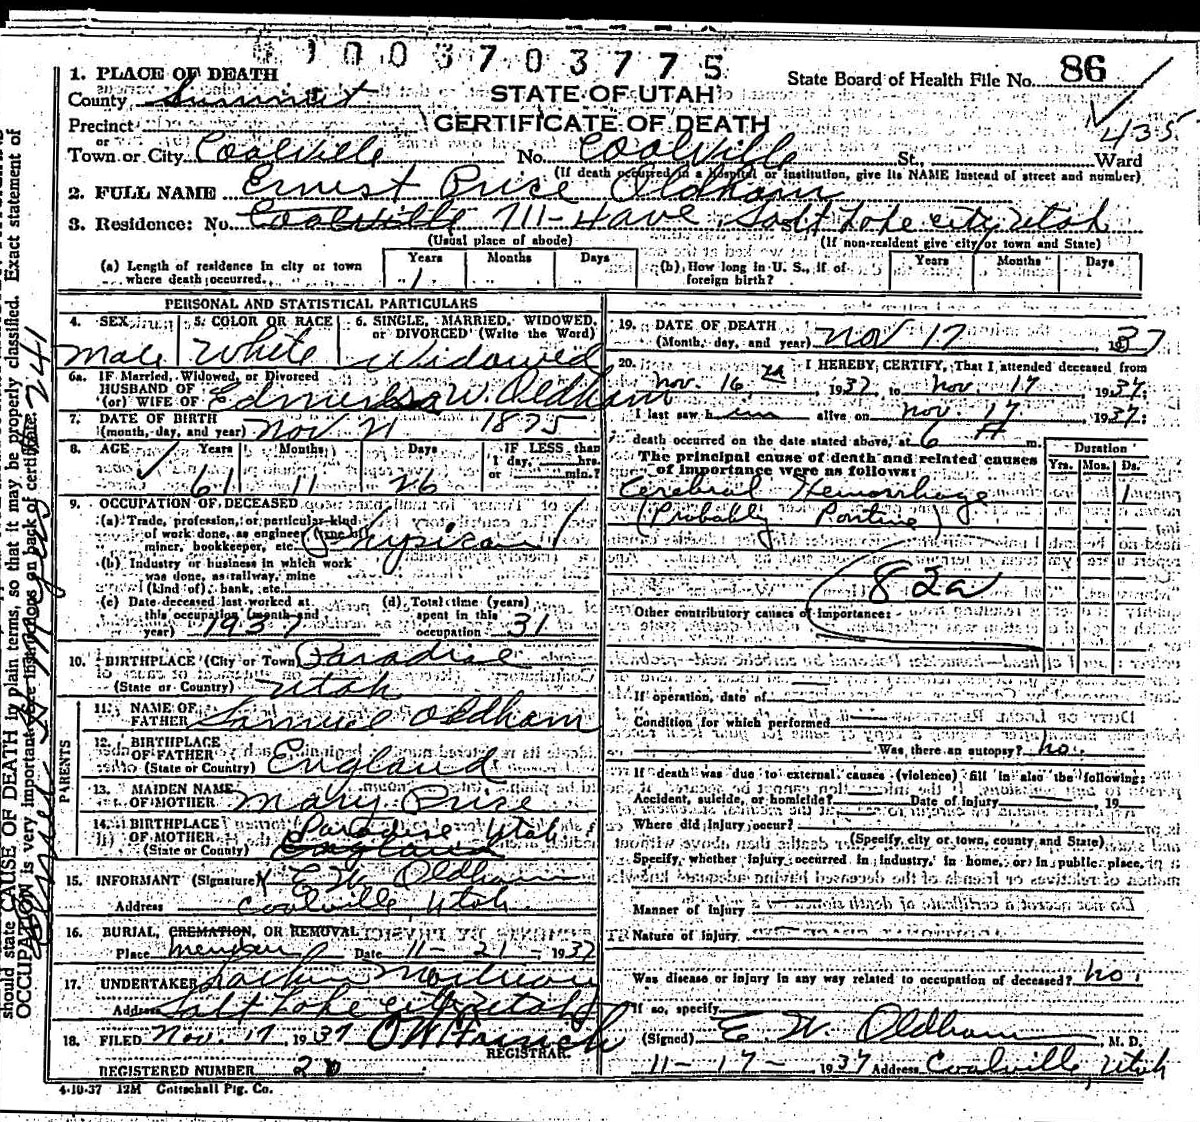 1003703775
1. PLACE OF DEATH
State Board of Health File No. 86
County Summit
STATE OF UTAH
Precinct
CERTIFICATE OF DEATH
435
or
Town or City Coalville No. Coalville St., Ward
(If death occurred in a hospital or institution, give its NAME instead of street and number)
2. FULL NAME Ernest Price Oldham
3. Residence: No. Coalville 711-H ave Salt Lake City, Utah
(Usual place of abode) (If non-resident give city or town and State)
(a) Length of residence in city or town where death occurred. Years 1 Months " Days "
(b) How long in U. S., if of foreign birth? Years Months Days
PERSONAL AND STATISTICAL PARTICULARS
4. SEX 5. COLOR OR RACE 6. SINGLE, MARRIED, WIDOWED,
or DIVORCED (Write the Word)
Male White Widowed
6a. IF Married, Widowed, or Divorced
HUSBAND OF
(or) WIFE OF W. Oldham
7. DATE OF BIRTH
(month, day, and year) Nov 21 1875
8. AGE Years Months Days IF LESS than
1 day, hrs.
or min.?
61 11 26
9. OCCUPATION OF DECEASED
(a) Trade, profession, or particular kind
of work done, as engineer
miner, bookkeeper, etc. Physican
(b) Industry or business in which work
was done, as railway, mine
(kind of), bank, etc.
(c) Date deceased last worked at
this occupation (month and
year) 1937
(d) Total time (years)
spent in this
occupation 31
10. BIRTHPLACE (City or Town) Paradise
(State or Country) Utah
PARENTS
11. NAME OF
FATHER Samuel Oldham
12. BIRTHPLACE
OF FATHER
(State or Country) England
13. MAIDEN NAME
OF MOTHER Mary Price
14. BIRTHPLACE
OF MOTHER
(State or County) Paradise Utah
England
15. INFORMANT (Signature) X E W Oldham
Address Coalville, Utah
16. BURIAL, CREMATION, OR REMOVAL
Place Mendon Date 11 - 21 - 1937
17. UNDERTAKER Larkin
Address Salt Lake City Utah
18. FILED Nov. 17, 1937
REGISTRAR.
REGISTERED NUMBER 20
4-10-37 12M Gottschall Ptg. Co.
19. DATE OF DEATH
(Month, day, and year) Nov 17 1937
20. I HEREBY CERTIFY, That I attended deceased from
Nov. 16, 1937, to Nov. 17 1937.
I last saw him alive on Nov. 17 1937.
death occurred on the date stated above, at 6 A m.
The principal cause of death and related causes
of importance were as follows:
Duration
Yrs. Mos. Ds.
Cerebral Hemorrhage 1
(Probably Pontine)
82a
Other contributory causes of importance:
If operation, date of
Condition for which performed
Was there an autopsy? no.
If death was due to external causes (violence) fill in also the following:
Accident, suicide, or homicide? Date of injury , 19
Where did injury occur?
(Specify, city or town, county and State)
Specify, whether injury occurred in industry, in home, or in public place.
Manner of injury
Nature of injury
Was disease or injury in any way related to occupation of deceased? no.
If so, specify
(Signed) E. W. Oldham, M. D.
11 - 17 - 1937 Address Coalville, Utah
should state CAUSE OF DEATH in plain terms, so that it may be properly classified. Exact statement of
OCCUPATION is very important. See instructions on back of certificate.